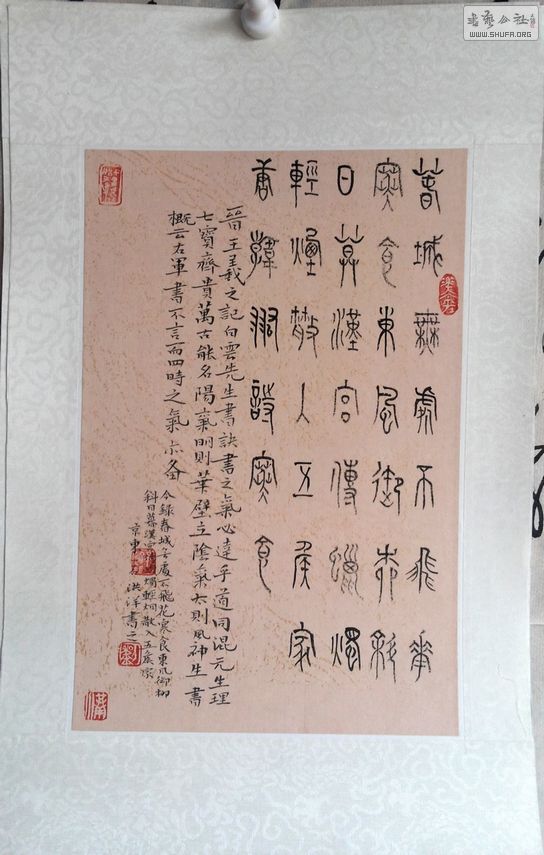 春城無處不飛華
寒食東風御柳斜
日暮漢宮傳蠟燭
輕煙散入五侯家
唐韓翃詩寒食
晉王羲之記白雲先生書訣書之氣必達乎道同混元生理
七寶齊貴萬古能名陽氣明則華壁立陰氣太則風神生書
概云右軍書不言而四時之氣亦备
今録春城无處不飛花寒食東風御柳
斜日暮漢宮燭輕烟散入五侯家
京東洪洋書之
書藝公社
WWW.SHUFA.ORG